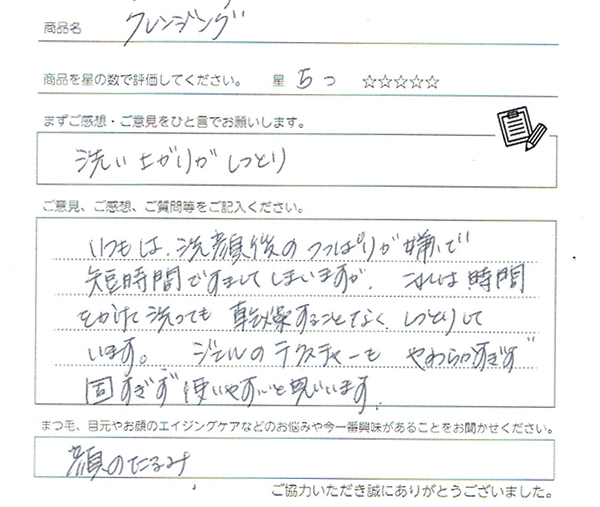 商品名 クレンジング
商品を星の数で評価してください。 星 5つ ☆☆☆☆☆
まずご感想・ご意見をひと言でお願いします。
洗い上がりがしっとり
ご意見、ご感想、ご質問等をご記入ください。
いつもは、洗顔後のつっぱりが嫌で
短時間ですましてしまいますが、これは時間
をかけて洗っても乾燥することなく、しっとりして
います。ジェルのテクスチャーもやわらかすぎず
固すぎず使いやすいと思います。
まつ毛、目元やお顔のエイジングケアなどのお悩みや今一番興味があることをお聞かせください。
顔のたるみ
ご協力いただき誠にありがとうございました。